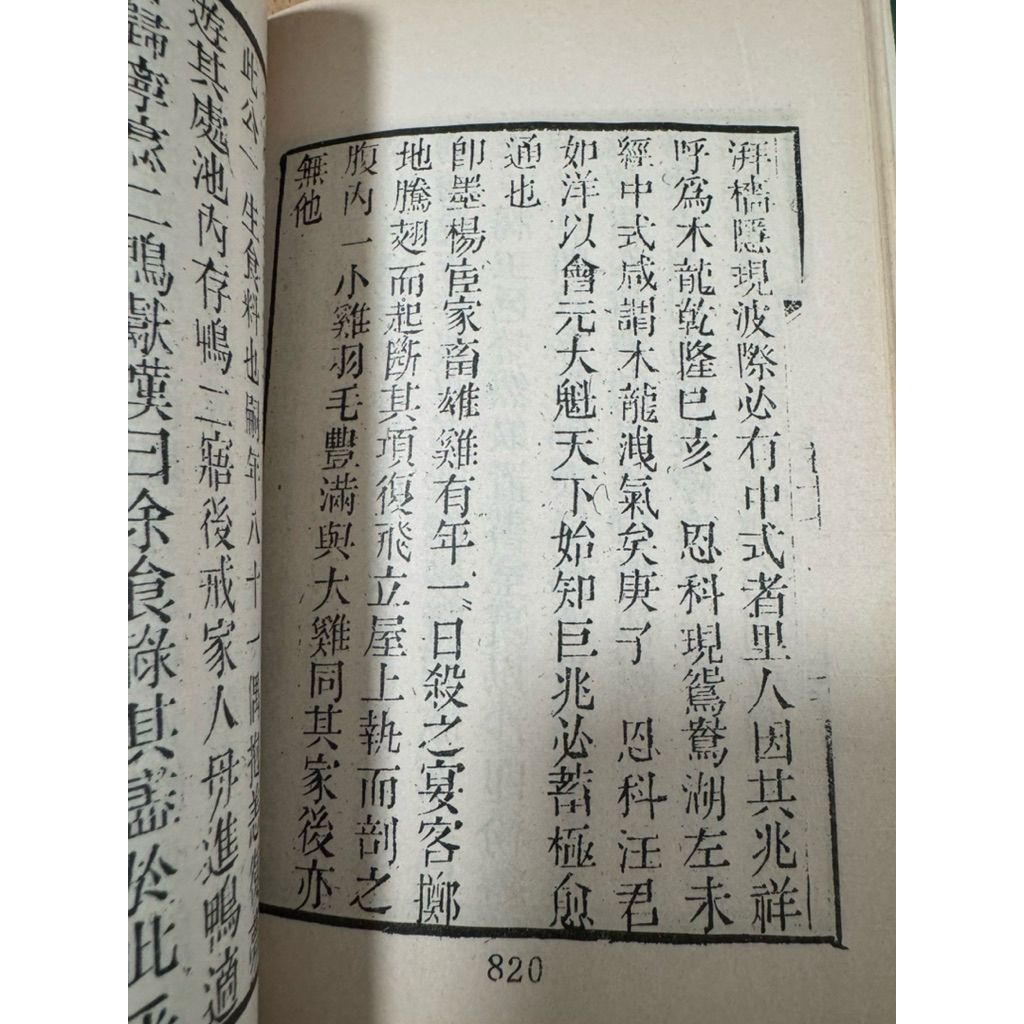 湃檣隱現波際必有中式者里人因其兆祥
呼為木龍乾隆己亥　恩科現鴛鴦湖左未
經中式咸謂木龍洩氣矣庚子　恩科汪君
如洋以會元大魁天下始知巨兆必蓄極愈
通也
即墨楊宦家畜雄雞有年一日殺之宴客擲
地騰翅而起斷其項復飛立屋上執而剖之
腹內一小雞羽毛豐滿與大雞同其家後亦
無他
820
此公一生食料也嗣年八十一偶抱恙
遊其處池內存鴨二寤後戒家人毋進鴨適
歸寧烹二鴨獻嘆曰余食祿其盡於此乎